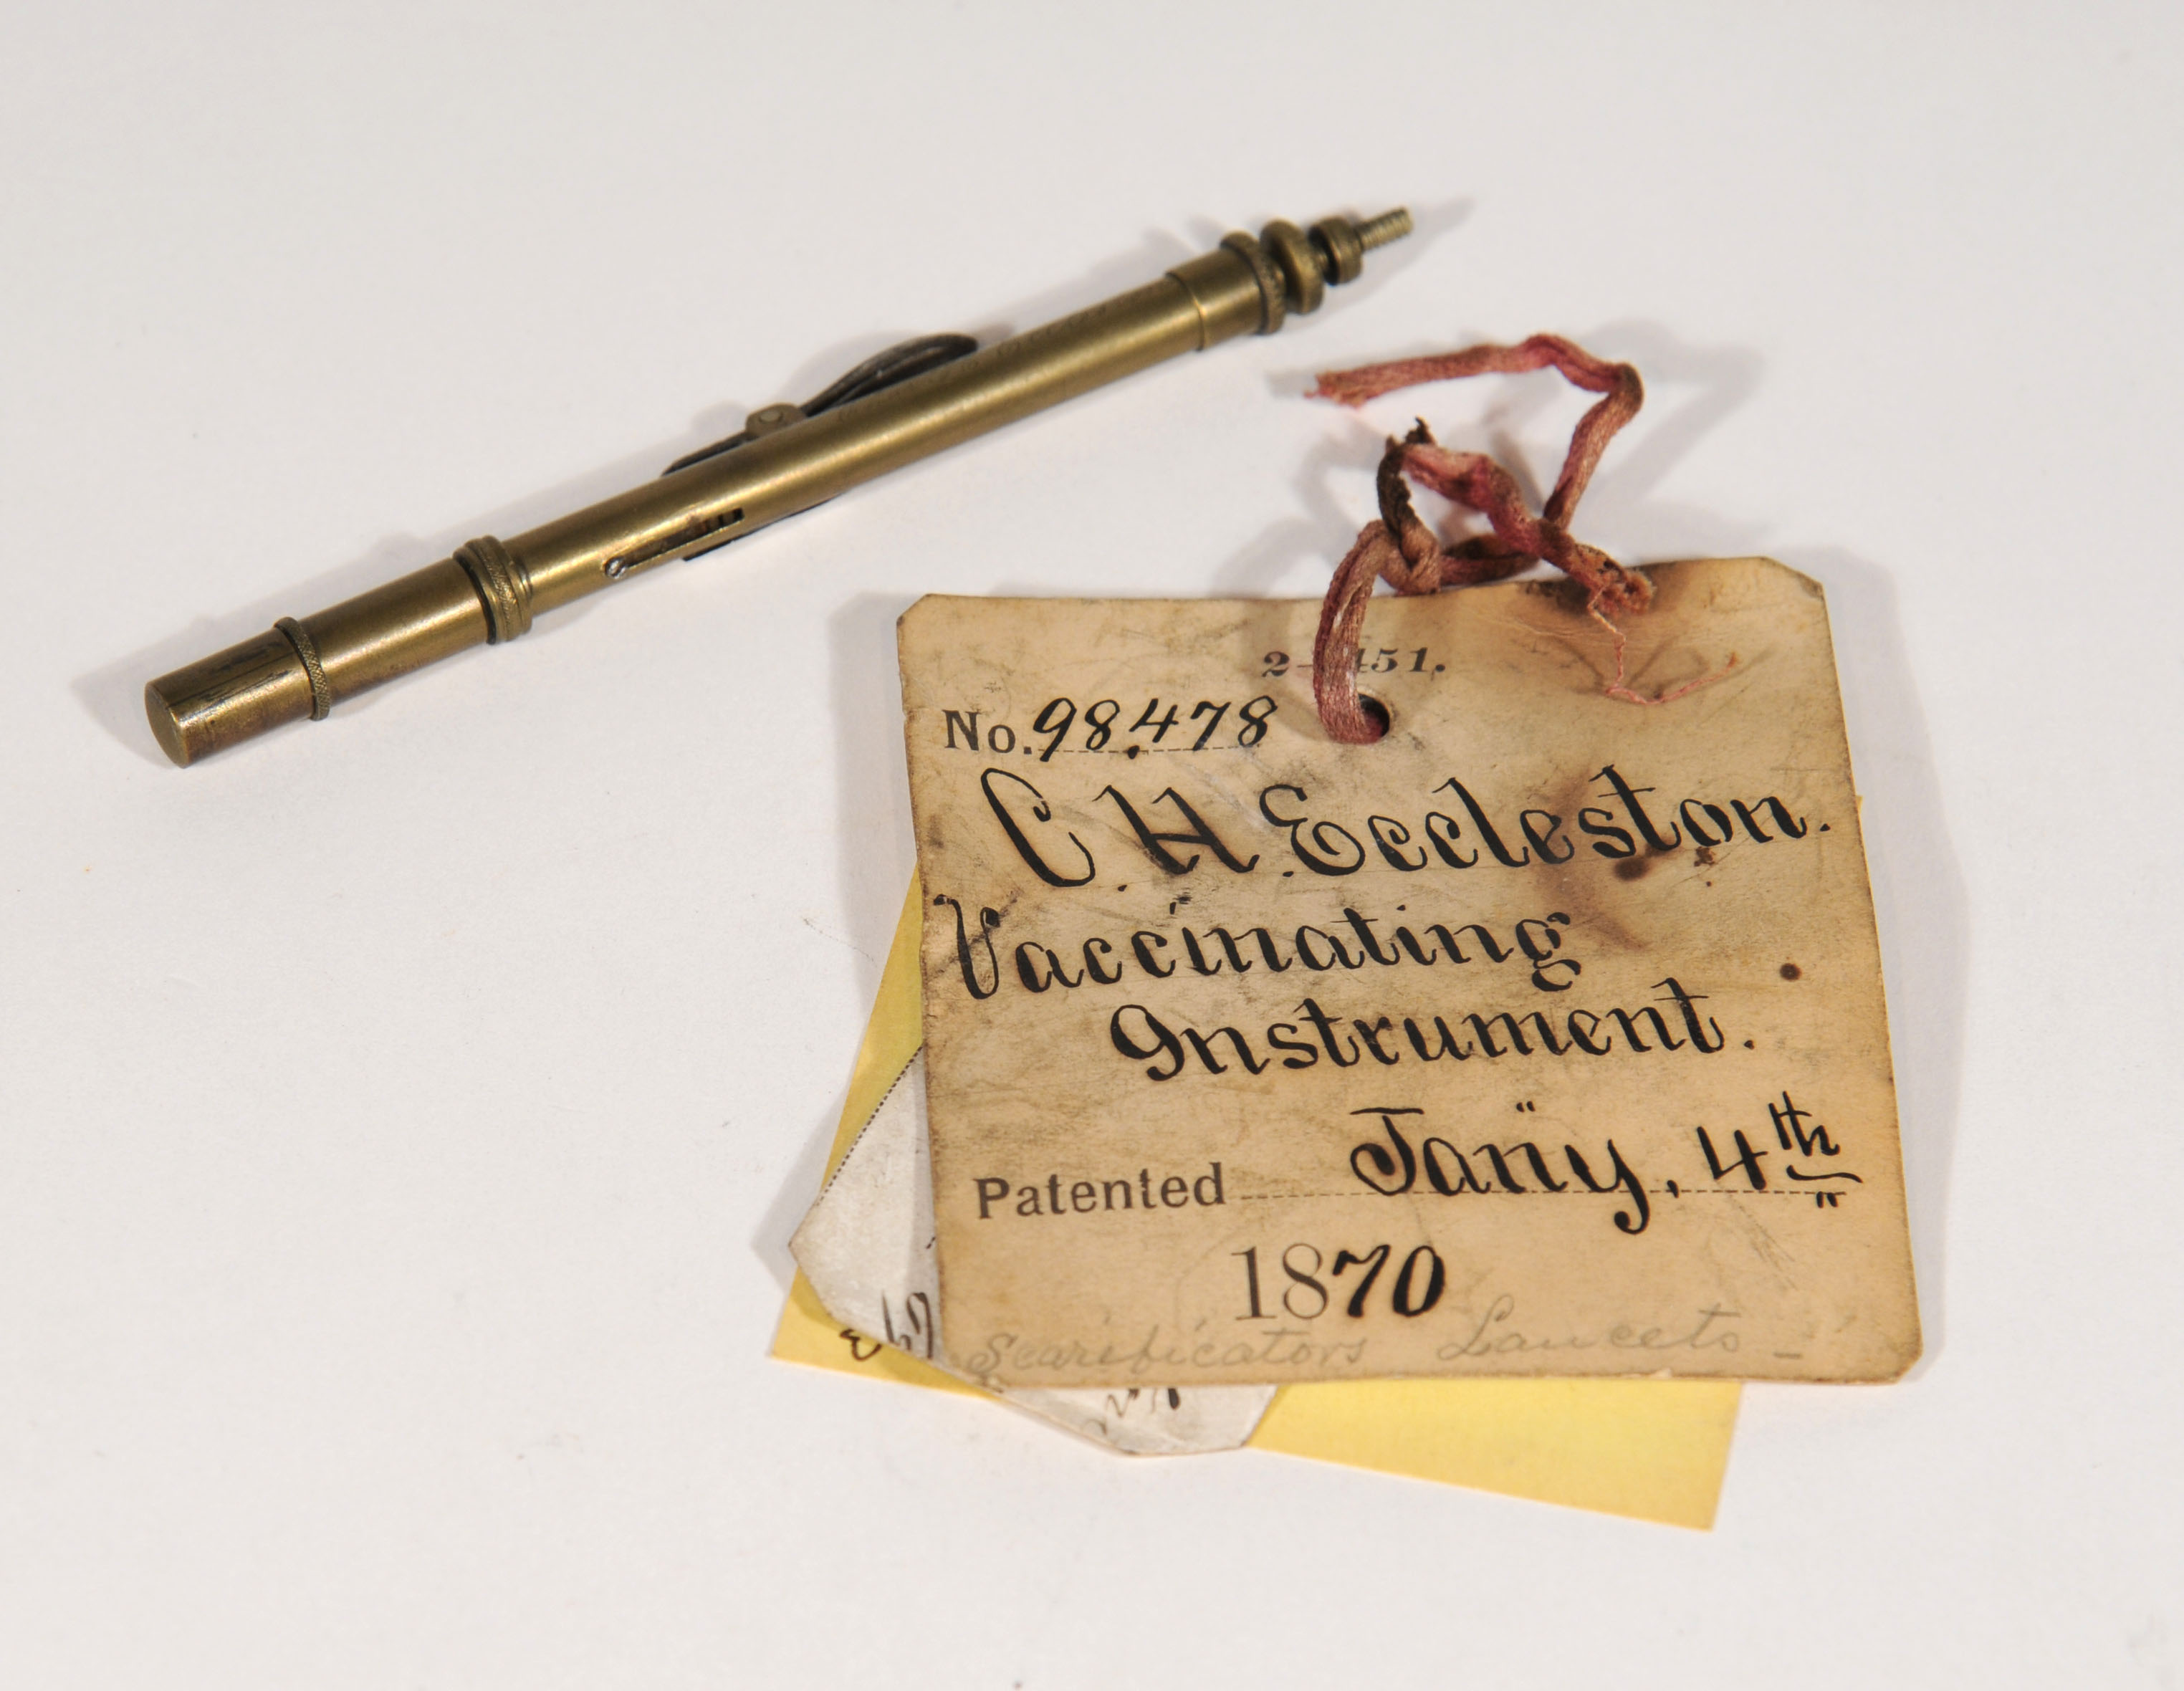 2- 451.
No. 98.478
C. H. Eccleston.
Vaccinating
Instrument.
Patented Jany, 4th
1870
Scarificators Lancets -